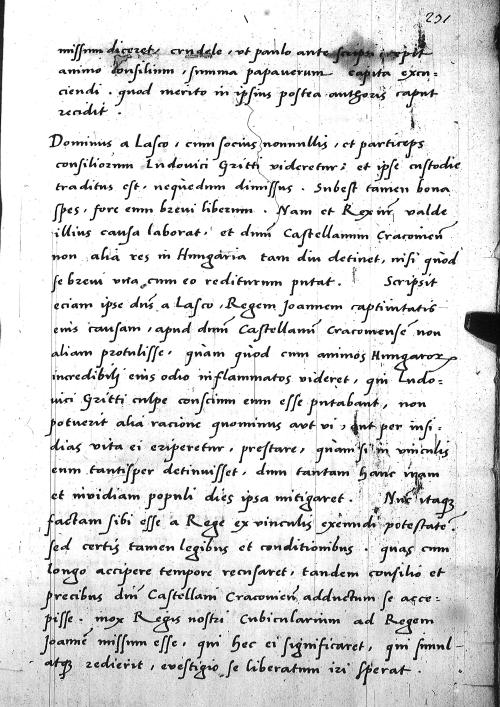 251
missum diceret, crudele, ut paulo ante scripsi cepit
animo consilium, summa papauerum capita excu-
ciendi. quod merito in ipsius postea authoris caput
recidit.
Dominus a Lasco, cum socius nonnullis, et particeps
consiliorum Ludouici Gritti videretur; et ipse custodie
traditus est, nequedum dimissus. Subest tamen bona
spes, fore eum breui liberum. Nam et Rex valde
illius causa laborat, et dnm̄ Castellanum Cracouień
non alia res in Hungaria tam diu detinet, nisi quod
se breui una cum eo rediturum putat. Scripsit
eciam ipse dns̄ a Lasco, Regem Joannem captiuitatis
eius causam, apud dnm̄ Castellanū Cracouiensē non
aliam protulisse, quam quod cum animos Hungaror
incredibilj eius odio inflammatos videret, qui Ludo-
uici Gritti culpe conscium eum esse putabant, non
potuerit alia racione quominus aut vi, aut per insi-
dias vita ei eriperetur, prestare, quam si in vinculis
eum tantisper detinuisset, dum tantam hanc iram
et inuidiam populi dies ipsa mitigaret. Nūc itaq
factam sibi esse a Rege ex vinculis exeundi potestatē.
sed certis tamen legibus et conditionibus. quas cum
longo accipere tempore recusaret, tandem consilio et
precibus dnī Castellani Cracouień adductum se acce-
pisse. mox Regis nostri Cubicularium ad Regem
Joannē missum esse, qui hec ei significaret, qui simul
atq redierit, euestigio se liberatum iri sperat.